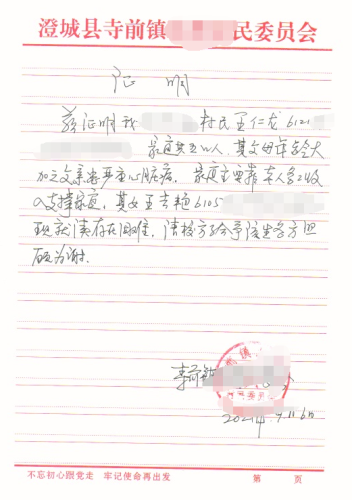 澄城县寺前镇 民委员会
证 明
兹证明我 村民王仁龙 6121
家庭共五口人,其父母年龄大
加之父亲患严重心脏病,家庭主要靠本人务工收
入支撑家庭,其女王 艳 6105
现就读存在困难,请校方给予该生各方照
顾为谢.
李前
2021年9月11 6日
不忘初心跟党走 牢记使命再出发 第 页